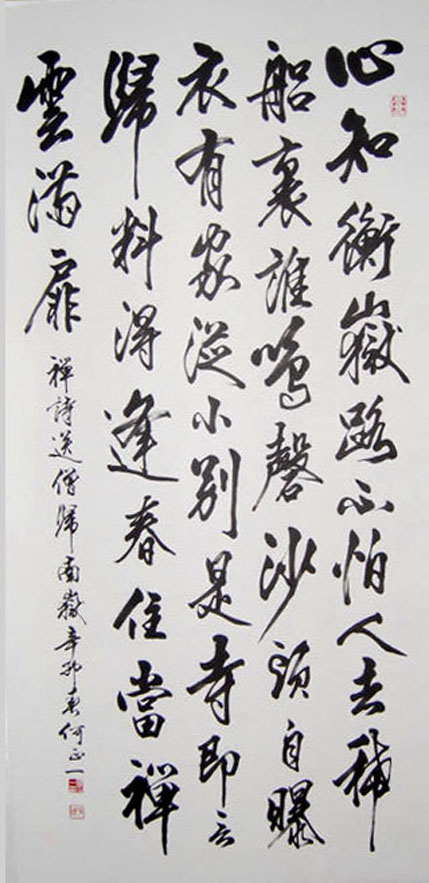 心知衡嶽路不怕人去稀
船裏誰鳴磬沙頭自曝
衣有家從小別是寺即言
歸料得逢春住當禪
雲滿扉
禪詩送僧歸南嶽辛卯春何正一